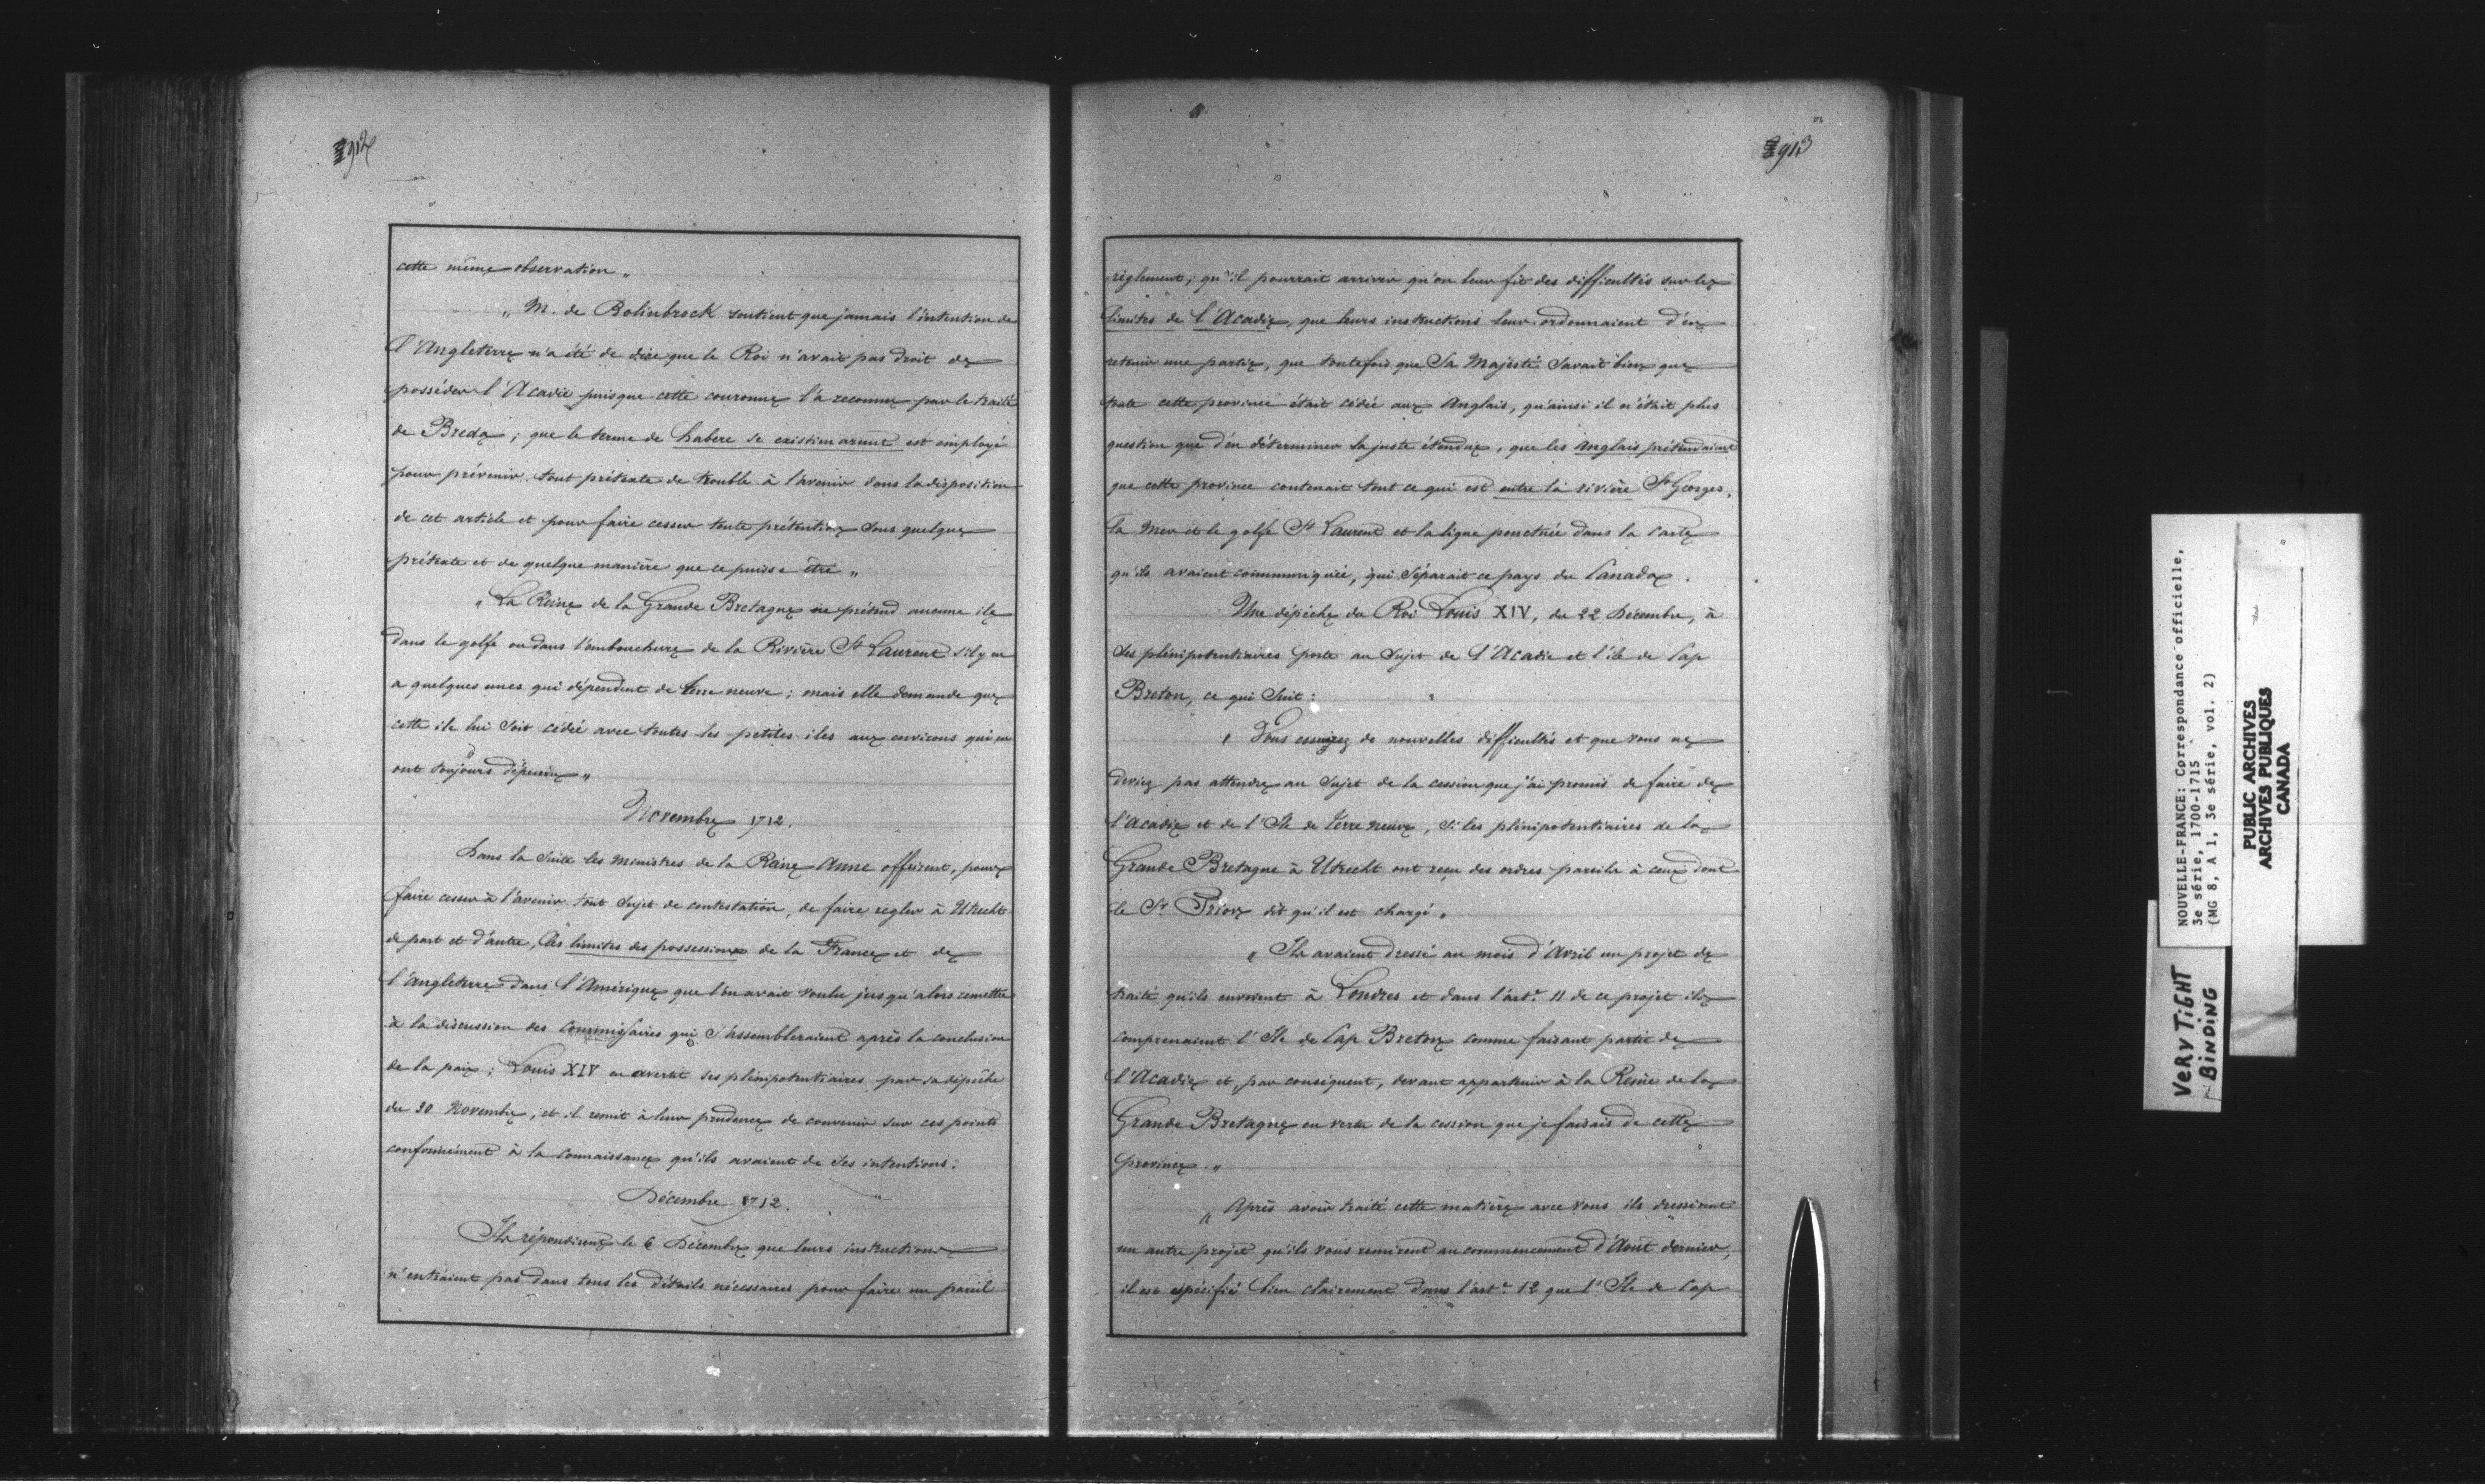 912
cette même observation „
„ M. de Bolinbrock soutient que jamais l'intention de
l'Angleterre n'a été de dire que le Roi n'avait pas droit de
posséder l'Acadie puisque cette couronne l'a reconnu par le traité
de Breda ; que le terme de habere se existimarunt est employé
pour prévenir tout prétexte de trouble à l'avenir dans la disposition
de cet article et pour faire cesser toute prétention sous quelque
prétexte et de quelque manière que ce puisse être „
„ La Reine de la Grande Bretagne ne prétend aucune ile
dans le golfe ou dans l'embouchure de la Rivière St Laurent s'il y en
a quelques unes qui dépendent de terre neuve ; mais elle demande que
cette ile lui soit cédée avec toutes les petites iles aux environs qui en
ont toujours dépendu „
Novembre 1712.
Dans la suite les ministres de la Reine Anne offrirent, pour
faire cesser à l'avenir tout sujet de contestation, de faire regler à Utrecht
de part et d'autre, les limites des possessions de la France et de
l'Angleterre dans l'Amérique que l'on avait voulu jusqu'alors remettre
à la discussion des Commissaires qui s'assembleraient après la conclusion
de la paix ; Louis XIV en avertit ses plénipotentiaires par sa dépêche
du 30 Novembre, et il remit à leur prudence de convenir sur ces points
conformément à la connaissance qu'ils avaient de ses intentions.
Décembre 1712.
Ils répondirent le 6 Décembre que leurs instructions
n'entraient pas dans tous les détails nécessaires pour faire un pareil
913
règlement ; qu'il pourrait arriver qu'on leur fit des difficultés sur les
limites de l'Acadie, que leurs instructions leur ordonnaient d'en
retenir une partie, que toutefois que Sa Majesté savait bien que
toute cette province était cédée aux Anglais, qu'ainsi il n'était plus
question que d'en déterminer la juste étendue, que les Anglais prétendaient
que cette province contenait tout ce qui est entre la rivière St Georges,
la Mer et le golfe St Laurent et la ligne ponctuée dans la Carte
qu'ils avaient communiquée, qui séparait ce pays du Canada.
Une dépêche du Roi Louis XIV, du 22 Décembre, à
ses plénipotentiaires porte au sujet de l'Acadie et l'ile de Cap
Breton, ce qui suit :
„ Vous essuyez de nouvelles difficultés et que vous ne
deviez pas attendre au sujet de la cession que j'ai promis de faire de
l'Acadie et de l'Ile de Terre neuve, si les plénipotentiaires de la
Grande Bretagne à Utrecht ont reçu des ordres pareils à ceux dont
le Sr. Prior dit qu'il est chargé „
„ Ils avaient dressé au mois d'Avril un projet de
traité qu'ils envoient à Londres et dans l'art. 11 de ce projet ils
comprenaient l'Ile de Cap Breton comme faisant partie de
l'Acadie et, par conséquent, devant appartenir à la Reine de la
Grande Bretagne en vertu de la cession que je faisais de cette
province „
„ Après avoir traité cette matière avec vous ils dressèrent
un autre projet qu'ils vous remirent au commencement d'Août dernier,
il est spécifié bien clairement dans l'art. 12 que l'Ile de Cap
NOUVELLE-FRANCE: Correspondance officielle,
3e série, 1700-1715
(MG 8, A 1, 3e série, vol. 2)
PUBLIC ARCHIVES
ARCHIVES PUBLIQUES
CANADA
VERY TIGHT
BINDING